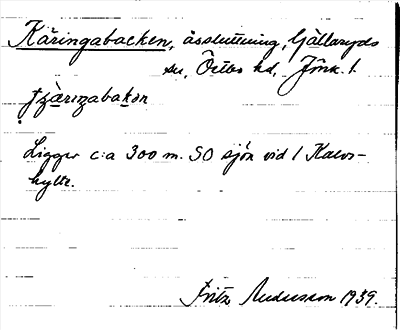 Käringabacken, åssluttning, Gällaryds
sn, Östbo hd, Jönk. l.
Ligger c:a 300 m. SO sjön vid l Kalvs-
hylte.
Fritz Andersson 1939.